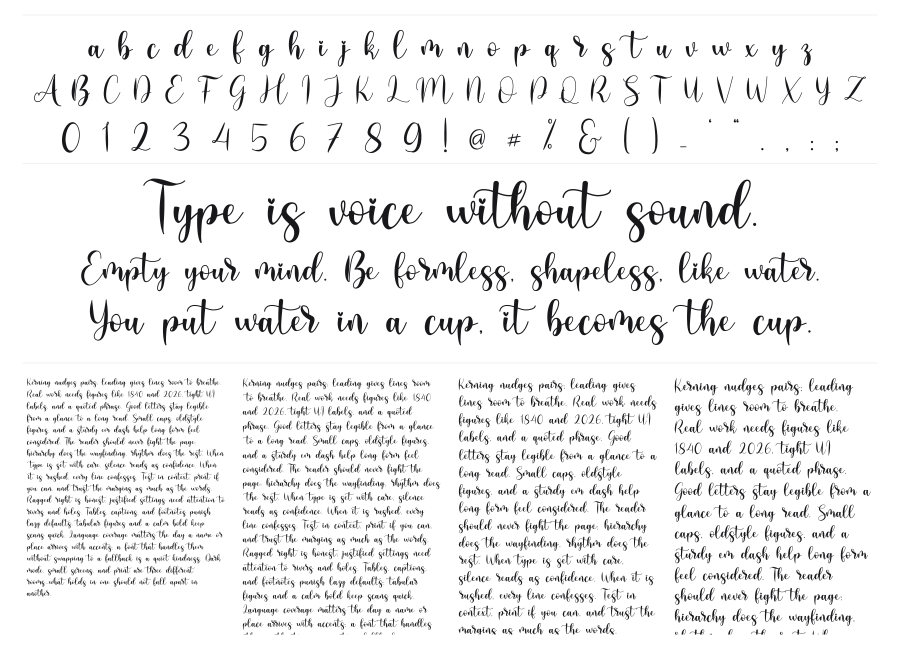 a b c d e f g h i j k l m n o p q r s t u v w x y z
A B C D E F G H I J K L M N O P Q R S T U V W X Y Z
0 1 2 3 4 5 6 7 8 9 ! @ # % & ( ) _ ' " . , : ;
Type is voice without sound.
Empty your mind. Be formless, shapeless, like water.
You put water in a cup, it becomes the cup.
Kerning nudges pairs; leading gives lines room to breathe.
Real work needs figures like 1840 and 2026, tight UI
labels, and a quoted phrase. Good letters stay legible
from a glance to a long read. Small caps, oldstyle
figures, and a sturdy em dash help long form feel
considered. The reader should never fight the page;
hierarchy does the wayfinding, rhythm does the rest. When
type is set with care, silence reads as confidence. When
it is rushed, every line confesses. Test in context, print if
you can, and trust the margins as much as the words.
Ragged right is honest; justified settings need attention to
rivers and holes. Tables, captions, and footnotes punish
lazy defaults; tabular figures and a calm bold keep
scans quick. Language coverage matters the day a name or
place arrives with accents; a font that handles them
without swapping to a fallback is a quiet kindness. Dark
mode, small screens, and print are three different
rooms; what holds in one should not fall apart in
another.
Kerning nudges pairs; leading gives lines room
to breathe. Real work needs figures like 1840
and 2026, tight UI labels, and a quoted
phrase. Good letters stay legible from a glance
to a long read. Small caps, oldstyle figures,
and a sturdy em dash help long form feel
considered. The reader should never fight the
page; hierarchy does the wayfinding, rhythm does
the rest. When type is set with care, silence
reads as confidence. When it is rushed, every
line confesses. Test in context, print if you can,
and trust the margins as much as the words.
Ragged right is honest; justified settings need
attention to rivers and holes. Tables, captions,
and footnotes punish lazy defaults; tabular
figures and a calm bold keep scans quick.
Language coverage matters the day a name or
place arrives with accents; a font that handles
Kerning nudges pairs; leading gives
lines room to breathe. Real work needs
figures like 1840 and 2026, tight UI
labels, and a quoted phrase. Good
letters stay legible from a glance to a
long read. Small caps, oldstyle
figures, and a sturdy em dash help
long form feel considered. The reader
should never fight the page; hierarchy
does the wayfinding, rhythm does the
rest. When type is set with care,
silence reads as confidence. When it is
rushed, every line confesses. Test in
context, print if you can, and trust the
margins as much as the words.
Kerning nudges pairs; leading
gives lines room to breathe.
Real work needs figures like
1840 and 2026, tight UI
labels, and a quoted phrase.
Good letters stay legible from a
glance to a long read. Small
caps, oldstyle figures, and a
sturdy em dash help long form
feel considered. The reader
should never fight the page;
hierarchy does the wayfinding,